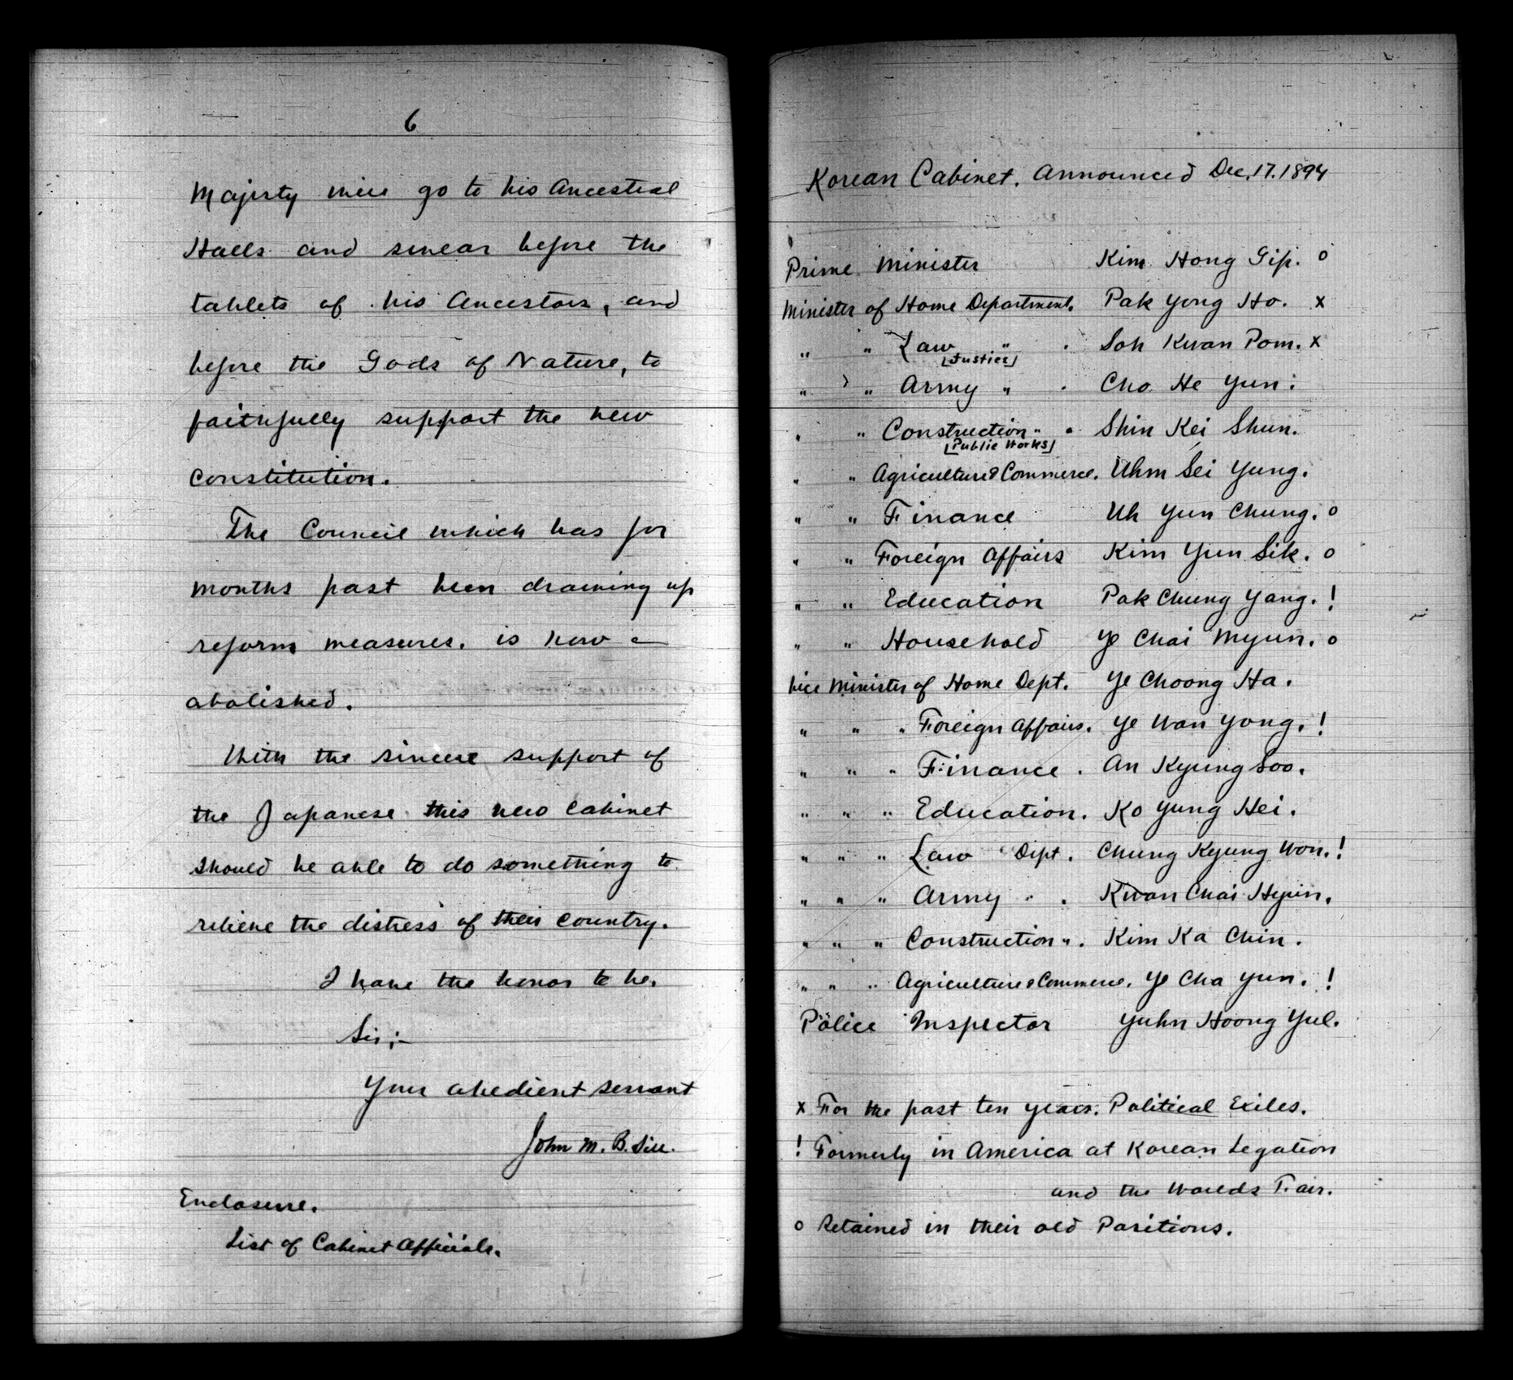 6
Majesty will go to his Ancestral
Halls and swear before the
tablets of his Ancestors, and
before the Gods of Nature, to
faithfully support the new
constitution.
The Council which has for
months past been drawing up
reform measures. is now
abolished.
With the sincere support of
the Japanese this new Cabinet
should be able to do something to
relieve the distress of their country.
I have the honor to be.
Sir;-
Your obedient servant
John M. B. Sill.
Enclosure.
List of Cabinet Officials.
Korean Cabinet. Announced Dec. 17. 1894
Prime Minister Kim Hong Gip. o
Minister of Home Department. Pak Yong Ho. x
" " Law " . Soh Kwan Pom. x
[Justice]
" " Army " . Cho He Yun.
" " Construction " . Shin Kei Shun.
[Public Works]
" " Agriculture & Commerce. Uhm Sei Yung.
" " Finance Uh Yun Chung. o
" " Foreign Affairs Kim Yun Sik. o
" " Education Pak Chung Yang. !
" " Household Ye Chai Myun. o
Vice Minister of Home Dept. Ye Choong Ha.
" " " Foreign Affairs. Ye Wan Yong. !
" " " Finance . An Kyung Soo.
" " " Education. Ko Yung Hei.
" " " Law Dept. Chung Kyung Won. !
" " " Army " . Kwan Chai Hyun.
" " " Construction " . Kim Ka Chin.
" " " Agriculture & Commerce. Ye Cha Yun. !
Police Inspector Yuhn Hoong Yul.
x For the past ten years. Political Exiles.
! Formerly in America at Korean Legation
and the Worlds Fair.
o Retained in their old Positions.